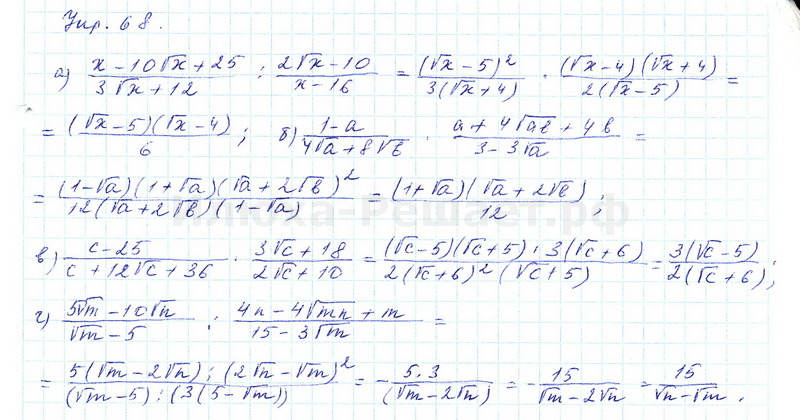 Упр. 68.
а) (x - 10√x + 25)/(3√x + 12) : (2√x - 10)/(x - 16) = (√x - 5)²/(3(√x + 4)) · ((√x - 4)(√x + 4))/(2(√x - 5)) =
= ((√x - 5)(√x - 4))/6 ; б) (1 - a)/(4√a + 8√b) · (a + 4√ab + 4b)/(3 - 3√a) =
= ((1 - √a)(1 + √a)(√a + 2√b)²)/(12(√a + 2√b)(1 - √a)) = ((1 + √a)(√a + 2√b))/12 ;
в) (c - 25)/(c + 12√c + 36) · (3√c + 18)/(2√c + 10) = ((√c - 5)(√c + 5) · 3(√c + 6))/(2(√c + 6)²(√c + 5)) = 3(√c - 5)/2(√c + 6) ;
г) (5√m - 10√n)/(√m - 5) : (4n - 4√mn + m)/(15 - 3√m) =
= (5(√m - 2√n) : (2√n - √m)²)/((√m - 5) : (3(5 - √m)) = - (5·3)/(√m - 2√n) = - 15/(√m - 2√n) = 15/(√n - √m) .
Илюха-Решает.рф